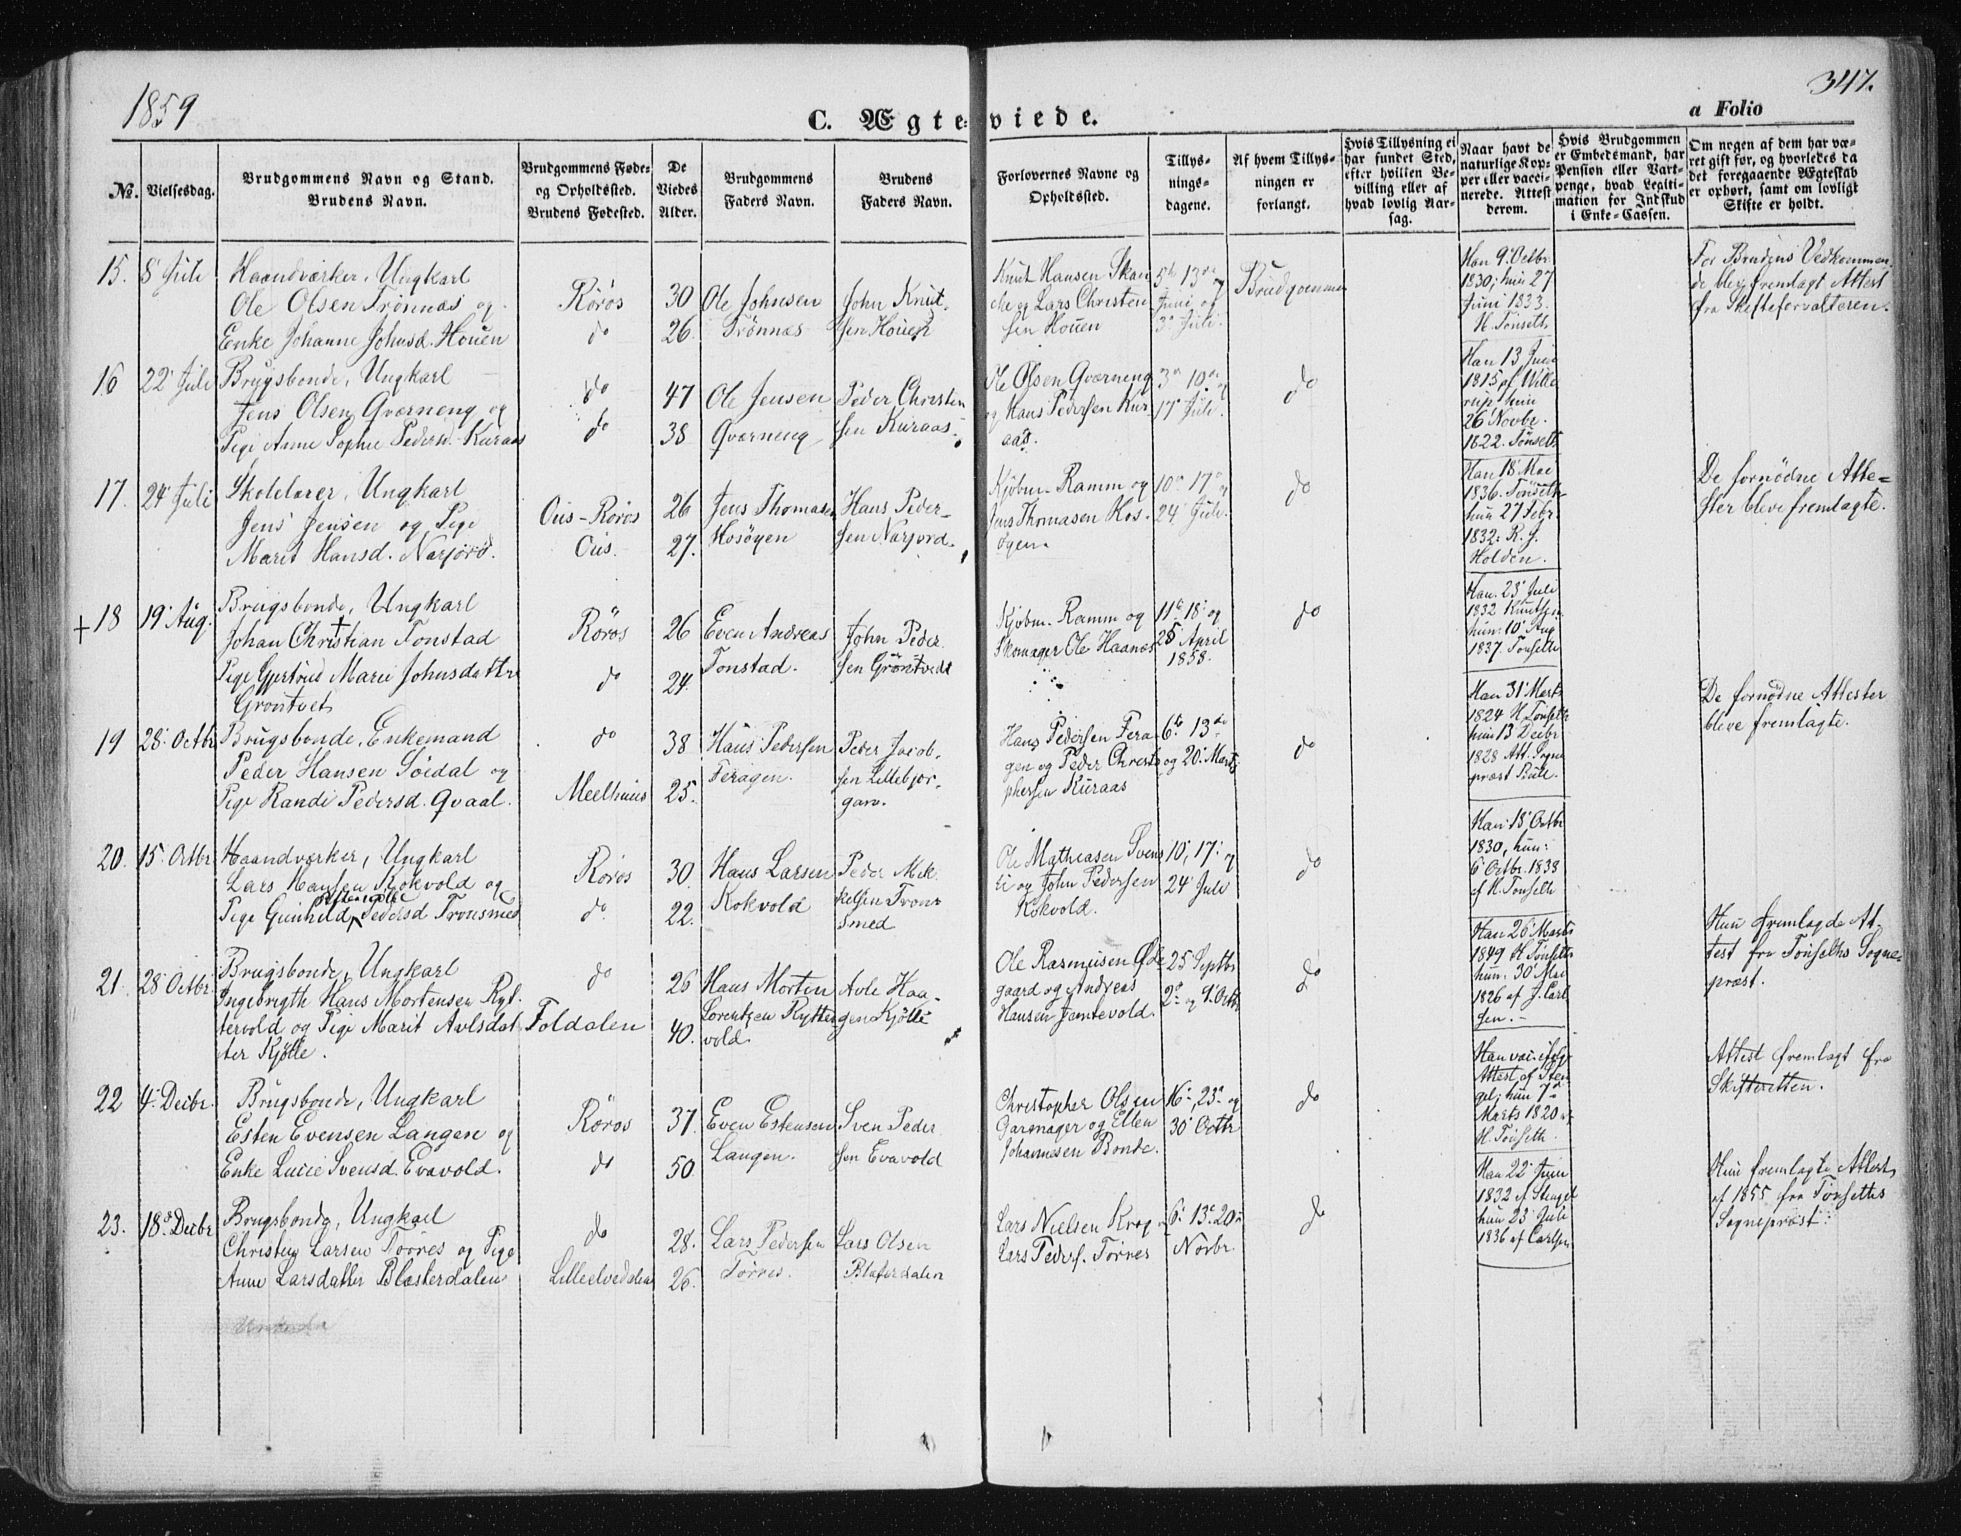 1859
347.
C. Ægteviede.
a Folio
No.
Vielsesdag.
Brudgommens Navn og Stand.
Brudens Navn.
Brudgommens Føde-
og Opholdssted.
Brudens Fødested.
De
Viedes
Alder.
Brudgommens
Faders Navn.
Brudens
Faders Navn.
Forlovernes Navne og
Opholdssted.
Tillys-
nings-
dagene.
Af hvem Tillys-
ningen er
forlangt.
Hvis Tillysning ei
har fundet Sted,
efter hvilken Be-
villing eller af
hvad lovlig Aar-
sag.
Naar havt de
naturlige Kop-
per eller vacci-
nerede. Attest
derom.
Hvis Brudgommen
er Embedsmand, har
Pension eller Vart-
penge, hvad Legiti-
mation for Indskud
i Enke-Cassen.
Om nogen af dem har væ-
ret gift før, og hvorledes da
det foregaaende Ægteskab
er ophørt, samt om lovligt
Skifte er holdt.
15. 8' Juli
Haandværker, Ungkarl
Ole Olsen Trønnæs og
Enke Johanne Johnsd. Houen
Röros
do
30
26.
Ole Johnsen
Trønnæs
John Knut-
sen Houen
Knut Hansen Skan
cke og Lars Christen
sen Houen
5te 13de
Juni og
3de Juli.
Brudgommen
Han 9' Octbr.
1830; hun 27
Juni 1833.
H. Tönseth
For Brudens Vedkommen
de blev fremlagt Attest
fra Skifteforvalteren.
16 22' Juli
Brugsbonde, Ungkarl
Jens Olsen Qværneng og
Pige Anne Sophie Pedersd. Kuraas
do
do
47
38
Ole Jensen
Qværneng
Peder Christen
sen Kuraas.
Ole Olsen Qværneng
og Hans Pedersen Kur-
aas.
3de 10de og
17' Juli.
do
Han 13 Juni
1815 af Wille
rup hun
26' Novbr.
1822. Tönseth
17. 24' Juli
Skolelærer, Ungkarl
Jens Jensen og Pige
Marit Hansd. Narjord.
Ous-Röros
Ous.
26
27.
Jens Thomasen
Hosöyen
Hans Peder-
sen Narjord.
Kjöbm. Ramm og
Jens Thomasen Hos-
öyen.
10de 17de og
24' Juli.
do
Han 18' Mai
1836. Tönseth
hun 27 Febr.
1832: R. J.
Holden.
De fornødne Atte=
ster bleve fremlagte.
+ 18 19' Aug.
Brugsbonde, Ungkarl
Johan Christian Tonstad
Pige Gjertrud Marie Johnsdatter
Gröntvet
Röros
do
26
24.
Even Andreas
Tonstad.
John Peder
sen Gröntvedt
Kjöbm. Ramm og
Skomager Ole Haanæs
11te 18' og
25 April
1858.
do
Han. 23' Juli
1832 Knutsen
hun: 10' Aug
1837. Tönseth
19 28' Octbr
Brugsbonde, Enkemand
Peder Hansen Söedal og
Pige Randi Pedersd. Qvaal.
do
Meelhuus
38
25.
Hans Pedersen
Feragen.
Peder Jacob-
sen Lillebjör-
gan.
Hans Pedersen Fera-
gen og Peder Christo
phersen Kuraas
6te 13de
og 20' Marts
do
Han 31' Marts
1824 H. Tönseth
hun 13 Decbr
1828 Att. Sogne
præst Bull.
De fornødne Attester
bleve fremlagte.
20. 15' Octbr
Haandværker, Ungkarl
Lars Hansen Kokvold og
Pige Gunhild Pedersd Tronsmed
Röros
do.
30.
22.
Hans Larsen
Kokvold
Peder Mik-
kelsen Trons
smed
Ole Mathiasen Svens
li og John Pedersen
Kokvold.
10', 17' og
24' Juli
do
Han 18' Octbr
1830, hun:
6' Octbr. 1838
af H. Tönseth
21. 28' Octbr
Brugsbonde, Ungkarl
Ingebrigth Hans Mortensen Ryt-
tervold og Pige Marit Avlsdat
ter Kjölle.
do
Foldalen
26
40.
Hans Morten
Lorentzen Rytter
vold
Avle Haa-
gen Kjölle
Ole Rasmusen Øde
gaard og Andreas
Hansen Jamtevold.
25' Septbr
2de og 9' Octbr
do
Han 26' Marts
1849 H Tönseth
hun: 30' Mai
1826 af J. Carl
sen.
Hun fremlagde At-
test fra Tönseths Sogne-
præst.
22 4' Decbr.
Brugsbonde, Ungkarl
Esten Evensen Langen og
Enke Lucie Svensd. Evavold.
Röros
do
37.
50
Even Estensen
Langen.
Sven Peder
sen Evavold
Christopher Olsen
Garmager og Ellen
Johannesen Bonde.
16', 23' og
30' Octbr
do
Han vac. ifølge
Attest af Sten
gel; hun 7de
Marts 1820 af
H. Tönseth.
Attest fremlagt fra
Skifteretten.
23. 18de Decbr
Brugsbonde, Ungkarl
Christen Larsen Törres og Pige
Anne Larsdatter Blæsterdalen
do
Lilleelvedalen
28.
26.
Lars Pedersen
Törres.
Lars Olsen
Blæsterdalen
Lars Nielsen Krog
Lars Peders. Törres
6' 13' 20'
Novbr.
do
Han 22' Juni
1832 af Stengel
hun 23' Juli
1836 af Carlsen
Hun fremlagte Attest
af 1855 fra Tönsettes
Sognepræst.